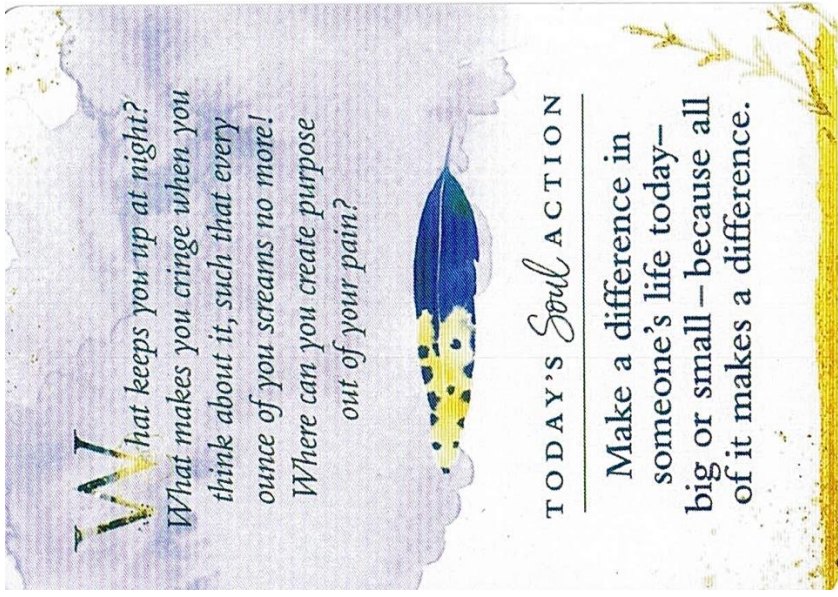 What keeps you up at night?
What makes you cringe when you
think about it, such that every
ounce of you screams no more!
Where can you create purpose
out of your pain?
TODAY'S Soul ACTION
Make a difference in
someone's life today—
big or small—because all
of it makes a difference.